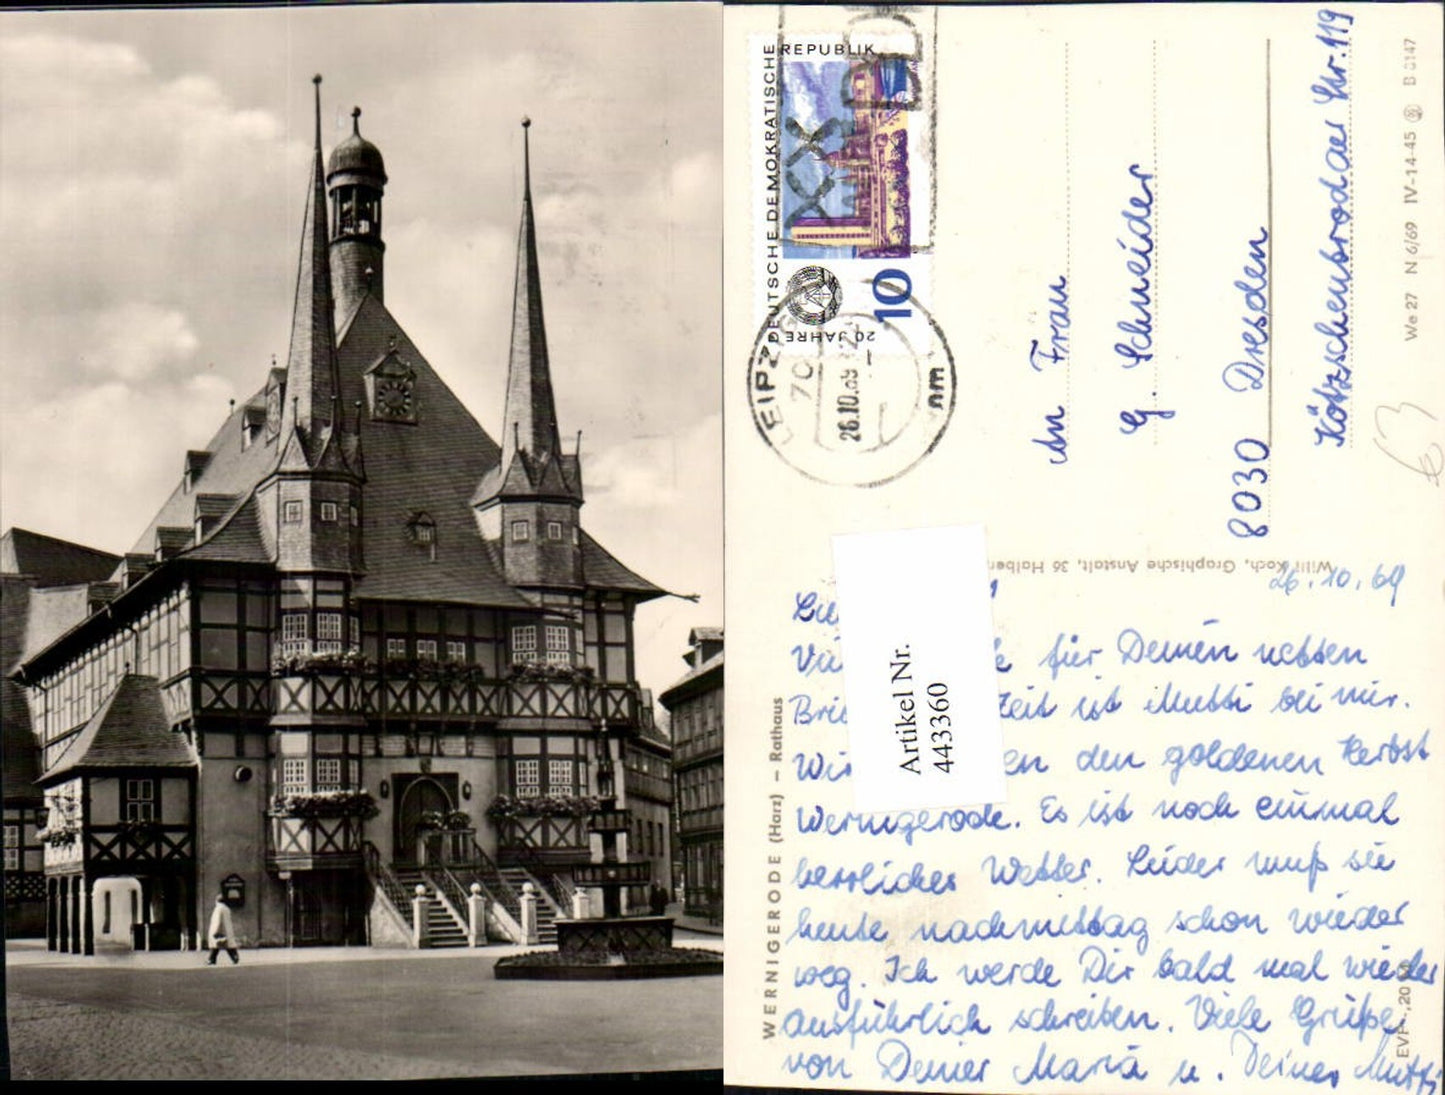 DEUTSCHE DEMOKRATISCHE REPUBLIK
20 JAHRE
10
LEIPZIG
70
26.10.69
WERNIGERODE (Harz) – Rathaus
Willi Koch, Graphische Anstalt, 36 Halber
We 27 N 6/69 IV-14-45 B 0147
EVP
Artikel Nr.
443360
An Frau
G. Schneider
8030 Dresden
Kötzschenbrodaer Str. 119
26.10.69
für Deinen netten
Zeit ist Mutti bei mir.
Wir den goldenen Herbst
Wernigerode. Es ist noch einmal
herrliches Wetter. Leider muß sie
heute nachmittag schon wieder
weg. Ich werde Dir bald mal wieder
ausführlich schreiben. Viele Grüße
von Deiner Maria u. Deiner Mutti